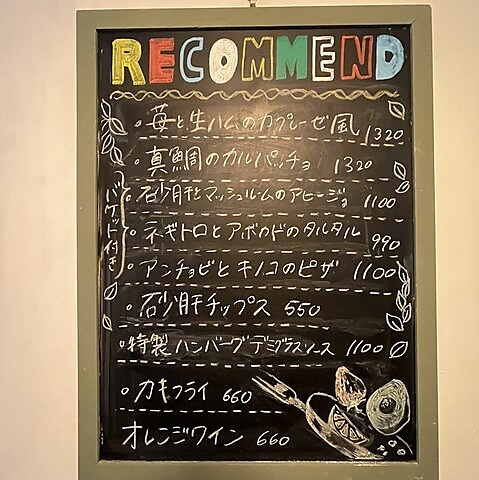 RECOMMEND
・苺と生ハムのカプレーゼ風 1320
・真鯛のカルパッチョ 1320
・砂肝とマッシュルームのアヒージョ 1100
・ネギトロとアボカドのタルタル 990
・アンチョビとキノコのピザ 1100
バケット付き
・砂肝チップス 550
・特製ハンバーグデミグラスソース 1100
・カキフライ 660
オレンジワイン 660